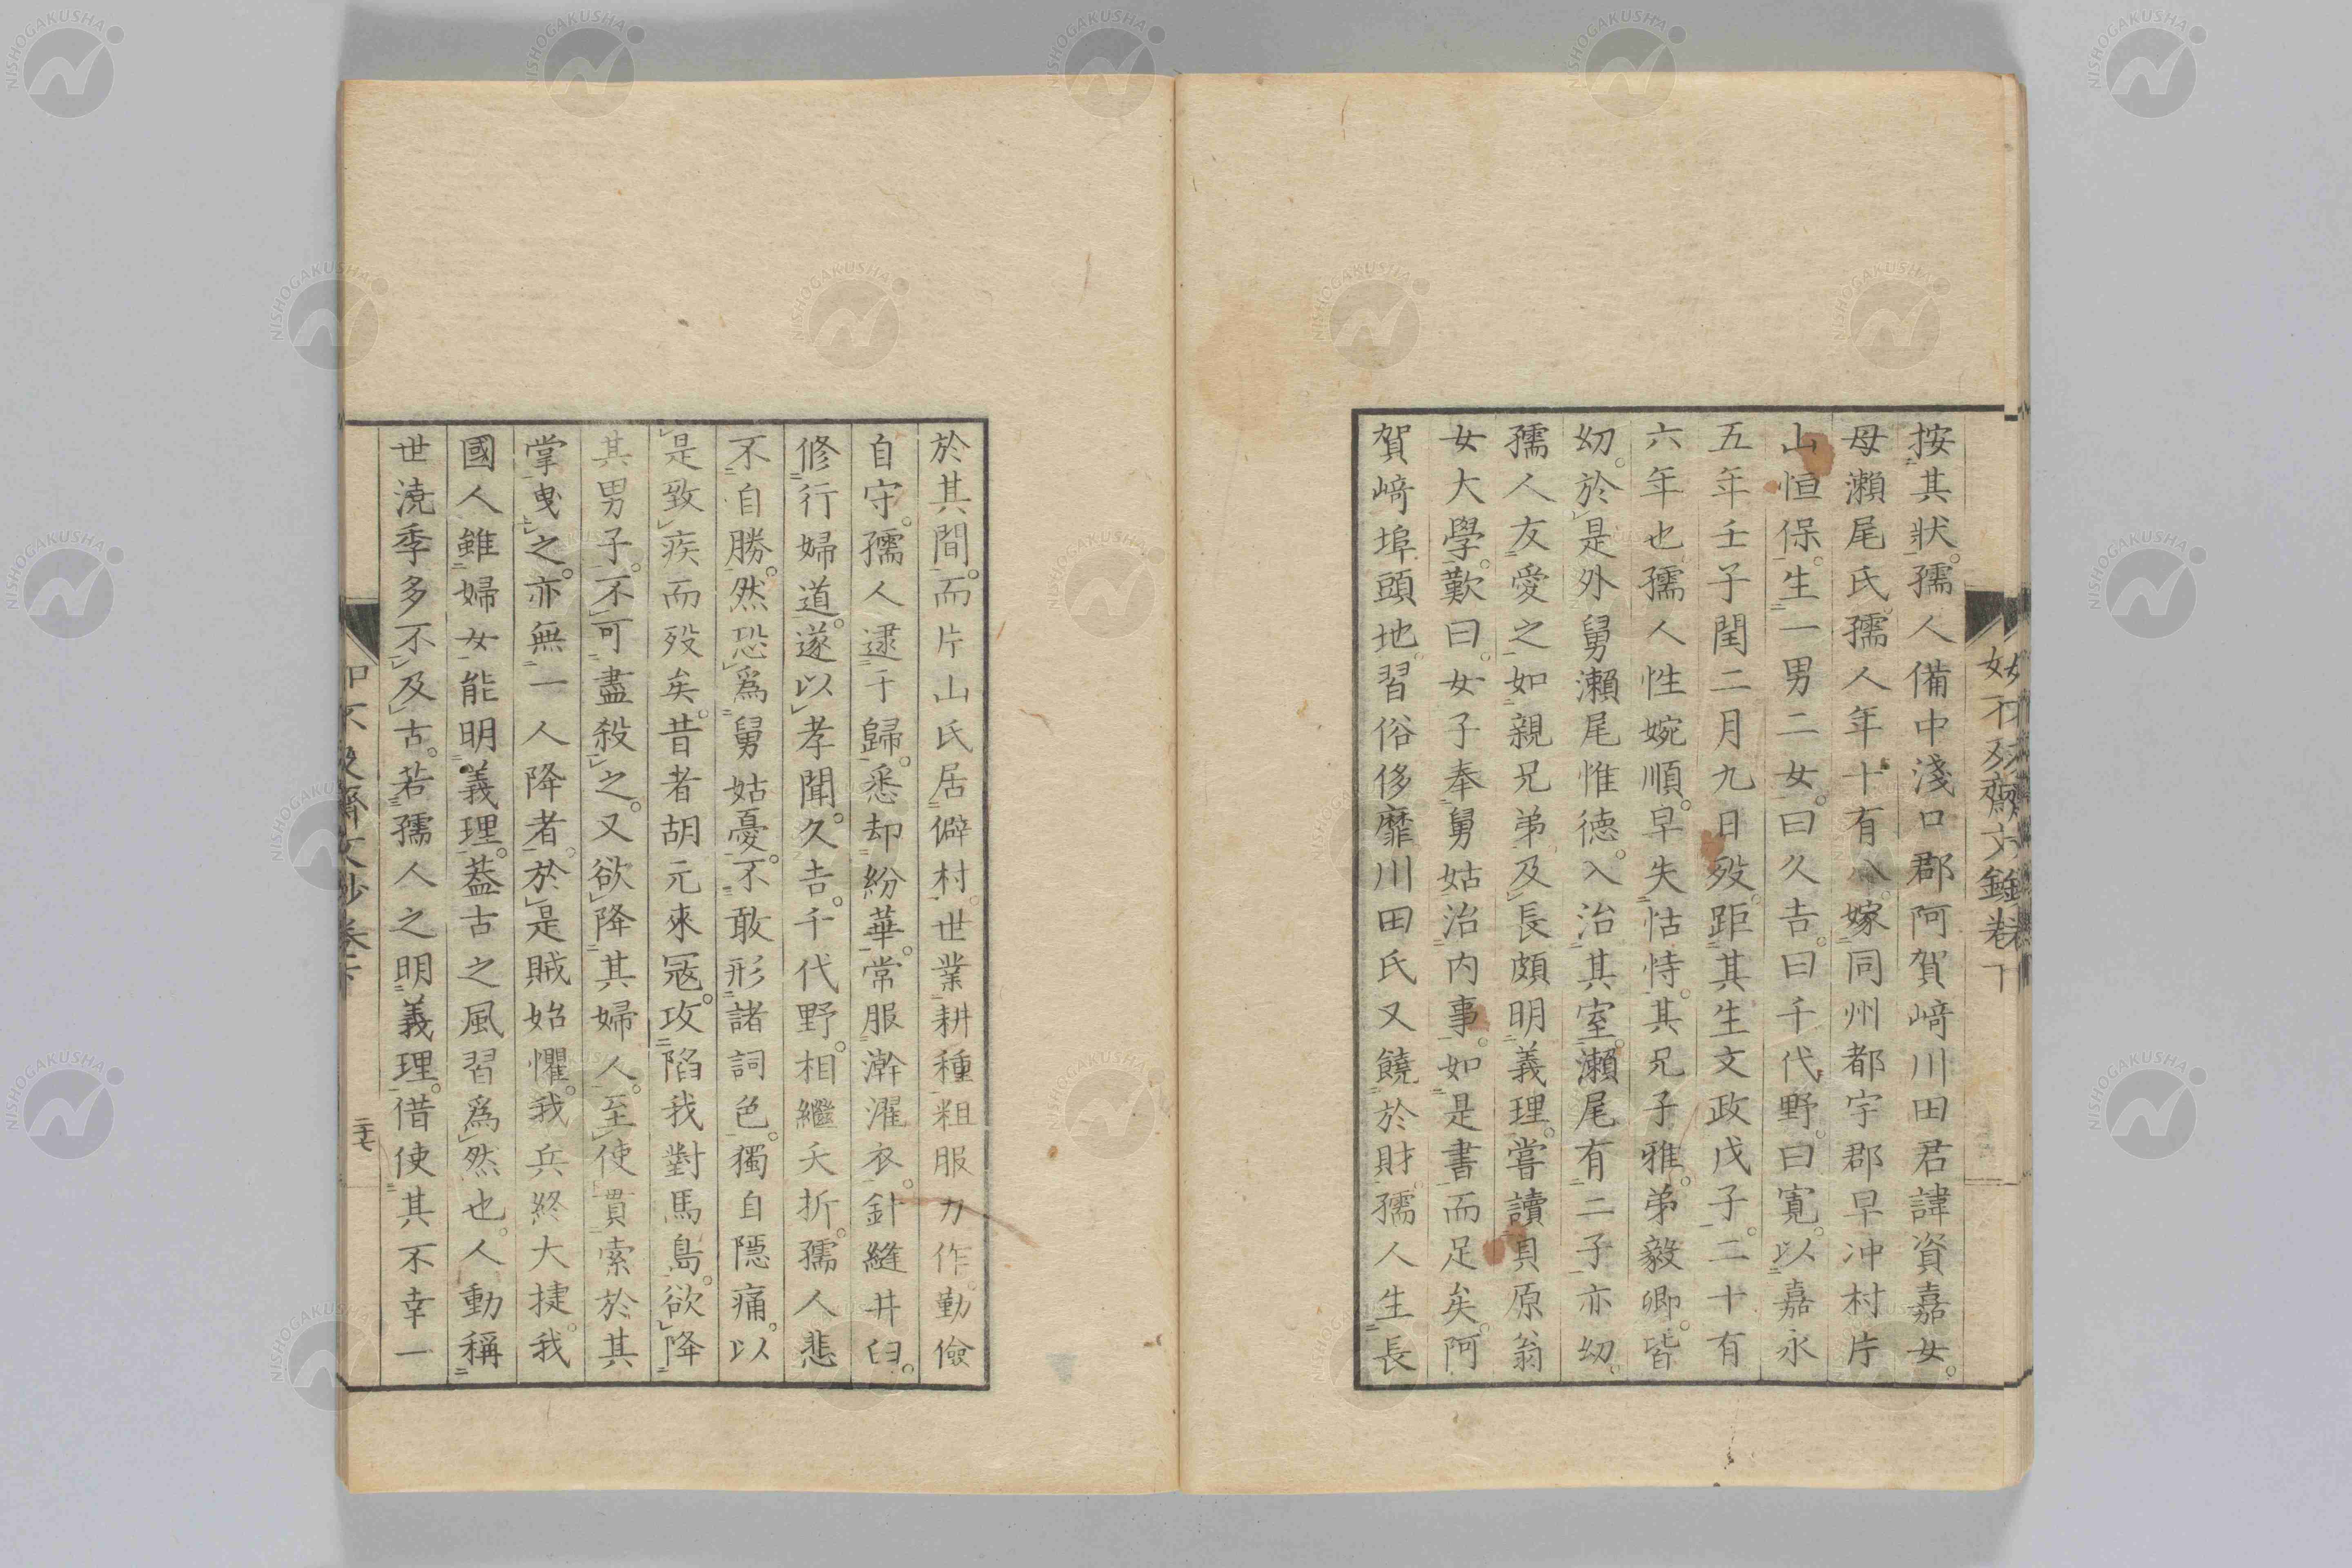 按其狀。孺人備中淺口郡阿賀﨑川田君諱資嘉女。
母瀨尾氏。孺人年十有八。嫁同州都宇郡早冲村片
山恒保。生一男二女。曰久吉。曰千代野。曰寬。以嘉永
五年壬子閏二月九日歿。距其生文政戊子。二十有
六年也。孺人性婉順。早失怙恃。其兄子雅。弟毅卿。皆
幼。於是外舅瀨尾惟德。入治其室。瀨尾有二子。亦幼。
孺人友愛之如親兄弟。及長頗明義理。嘗讀貝原翁
女大學。歎曰。女子奉舅姑治內事。如是書而足矣。阿
賀﨑埠頭地。習俗侈靡。川田氏又饒於財。孺人生長
於其間。而片山氏居僻村。世業耕種。粗服力作。勤儉
自守。孺人逮于歸。悉却紛華。常服澣濯衣。針縫井臼。
修行婦道。遂以孝聞。久吉。千代野。相繼夭折。孺人悲
不自勝。然恐爲舅姑憂。不敢形諸詞色。獨自隱痛。以
是致疾而歿矣。昔者胡元來冦。攻陷我對馬島。欲降
其男子。不可盡殺之。又欲降其婦人。至使貫索於其
掌曳之。亦無一人降者。於是賊始懼。我兵終大捷。我
國人雖婦女能明義理。蓋古之風習爲然也。人動稱
世澆季多不及古。若孺人之明義理。借使其不幸一
如不及齋文鈔卷下
二十七
NISHOGAKUSHA